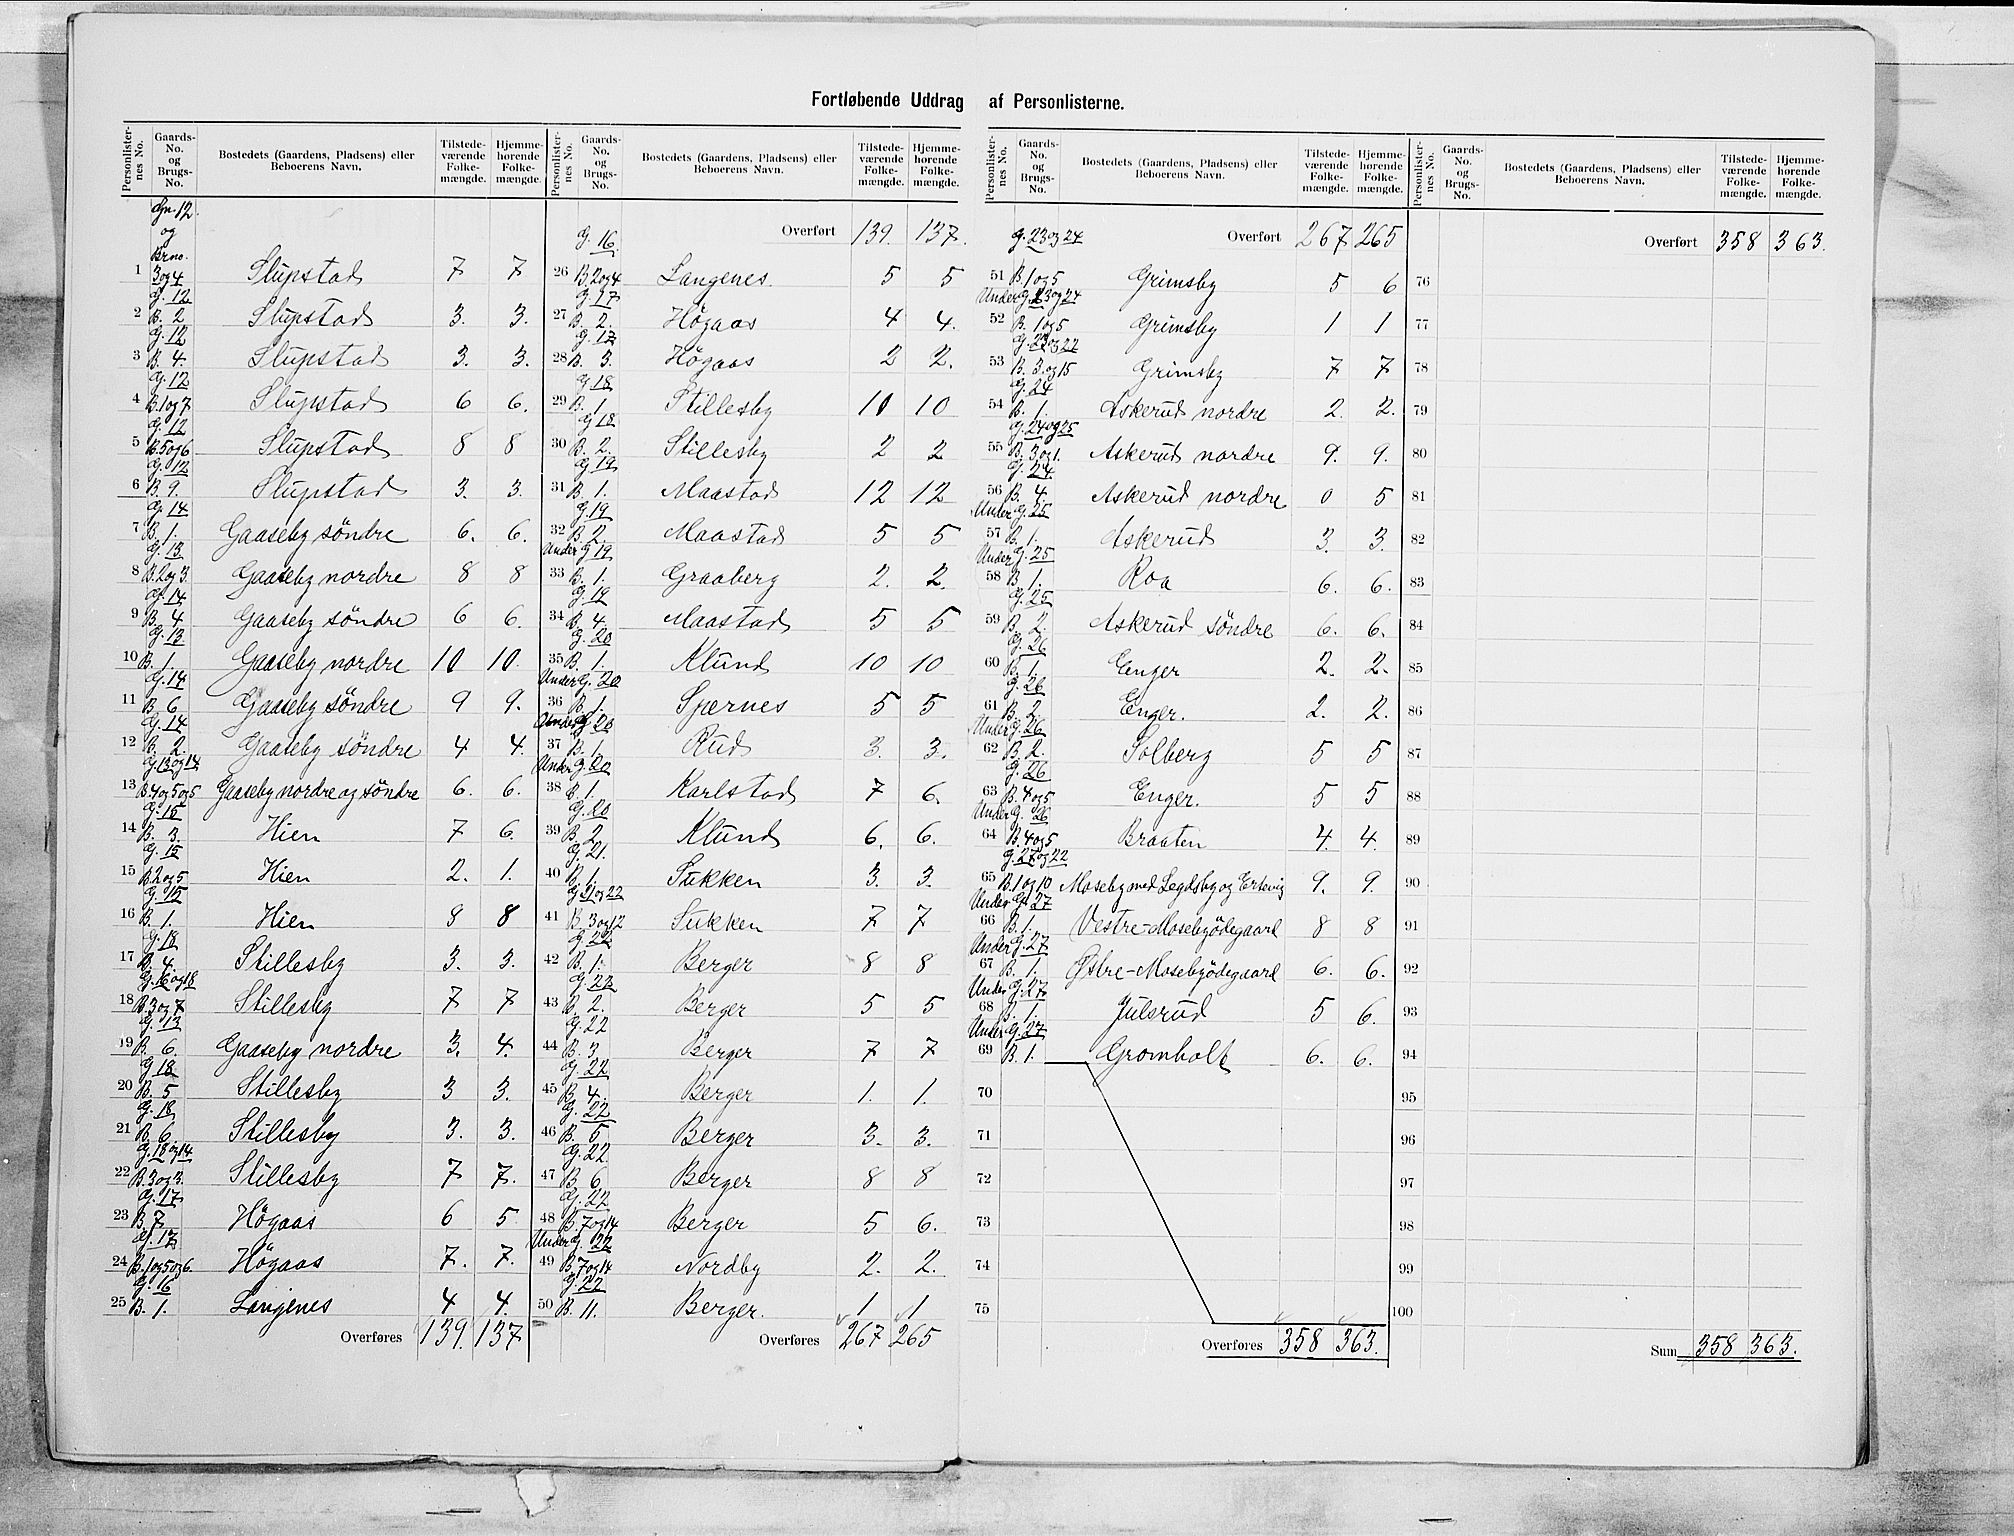 Fortløbende Uddrag af Personlisterne.
Personlister-nes No. Gaards-No. og Brugs-No. Bostedets (Gaardens, Pladsens) eller Beboerens Navn. Tilstede-værende Folke-mængde. Hjemme-hørende Folke-mængde.
Gn. 12 og Brno.
1 3og4 Slupstad 7 7
2 G. 12 B. 2 Slupstad 3. 3.
3 G. 12 B. 4. Slupstad 3. 3.
4 G. 12 B. 1og7 Slupstad 6 6.
5 G. 12 B. 5og6 Slupstad 8 8
6 G. 12 B. 9. Slupstad 3. 3.
7 G. 14 B. 1. Gaaseby söndre 6. 6.
8 G. 13 B. 2og3. Gaaseby nordre 8 8
9 G. 14 B. 4 Gaaseby söndre 6 6.
10 G. 13 B. 1. Gaaseby nordre 10 10.
11 G. 14 B. 6 Gaaseby söndre 9 9.
12 G. 14 B. 2. Gaaseby söndre 4 4.
13 G. 13og14 B. 4og5og5 Gaaseby nordre og söndre 6. 6.
14 G. 15 B. 3. Hien 7 6.
15 G. 15 B. 2og5 Hien 2. 1.
16 G. 15 B. 1. Hien 8 8
17 G. 18 B. 4. Stillesby 3. 3.
18 G. 16og18 B. 3og7 Stillesby 7 7
19 G. 13 B. 6. Gaaseby nordre 3. 4.
20 G. 18 B. 5 Stillesby 3 3.
21 G. 18 B. 6. Stillesby 3. 3.
22 G. 18og14 B. 3og3. Stillesby 7 7.
23 G. 17 B. 7 Högaas 6 5
24 G. 17 B. 1og5og6. Högaas 7. 7.
25 G. 16 B. 1. Langenes 4 4.
Overføres 139. 137
Personlister-nes No. Gaards-No. og Brugs-No. Bostedets (Gaardens, Pladsens) eller Beboerens Navn. Tilstede-værende Folke-mængde. Hjemme-hørende Folke-mængde.
Overført 139. 137.
26 G. 16. B. 2og4 Langenes. 5 5
27 G. 17 B. 2. Högaas 4 4.
28 G. 17 B. 3. Högaas 2 2.
29 G. 18 B. 1. Stillesby 10 10
30 G. 18 B. 2. Stillesby 2 2
31 G. 19 B. 1. Maastad 12 12
32 G. 19 B. 2. Maastad 5 5
33 Under G. 19 B. 1. Graaberg 2. 2.
34 G. 19 B. 4. Maastad 5 5
35 G. 20 B. 1. Klund 10 10
36 Under G. 20 B. 1. Spernes 5 5
37 Under G. 20 B. 1. Rud 3. 3.
38 Under G. 20 B. 1. Karlstad 7 6.
39 G. 20 B. 2. Klund 6. 6.
40 G. 21. B. 1. Sukken 3. 3.
41 G. 21og22 B. 3og12 Sukken 7 7
42 G. 22 B. 1. Berger 8 8
43 G. 22 B. 2. Berger 5 5
44 G. 22 B. 3 Berger 7 7
45 G. 22 B. 4. Berger 1. 1.
46 G. 22 B. 5 Berger 3. 3.
47 G. 22. B. 6 Berger 8 8
48 G. 22 B. 7og14 Berger 5 6.
49 Under G. 22 B. 7og14 Nordby 2. 2.
50 G. 22 B. 11. Berger. 1 1
Overføres 267 265
Personlister-nes No. Gaards-No. og Brugs-No. Bostedets (Gaardens, Pladsens) eller Beboerens Navn. Tilstede-værende Folke-mængde. Hjemme-hørende Folke-mængde.
Overført 267 265
51 G. 23og24 B. 1og5 Grimsby 5 6
52 Under G. 23og24 B. 1og5 Grimsby 1 1
53 G. 23og22 B. 3.og15 Grimsby 7 7
54 G. 24 B. 1. Askerud nordre 2. 2.
55 G. 24og25 B. 3og1. Askerud nordre 9. 9.
56 G. 24 B. 4. Askerud nordre 0 5
57 Under G. 25 B. 1. Askerud 3. 3.
58 Under G. 25 B. 1. Roa 6. 6.
59 G. 25 B. 2. Askerud söndre 6. 6.
60 G. 26 B. 1. Enger 2. 2.
61 G. 26 B. 2 Enger. 2. 2.
62 Under G. 26 B. 2. Solberg 5 5
63 G. 26 B. 4og5 Enger. 5 5
64 Under G. 26 B. 4og5 Braaten 4. 4.
65 G. 27og22 B. 1og10 Moseby med Legdsby og Ertevig 9. 9.
66 Under G. 27 B. 1. Vestre-Mosebyödegaard 8 8
67 Under G. 27 B. 1. Østre-Mosebyödegaard 6. 6.
68 Under G. 27 B. 1. Julsrud 5 6.
69 Under G. 27 B. 1. Gromholt 6. 6.
70
71
72
73
74
75
Overføres 358 363.
Personlister-nes No. Gaards-No. og Brugs-No. Bostedets (Gaardens, Pladsens) eller Beboerens Navn. Tilstede-værende Folke-mængde. Hjemme-hørende Folke-mængde.
Overført 358 363.
76
77
78
79
80
81
82
83
84
85
86
87
88
89
90
91
92
93
94
95
96
97
98
99
100
Sum 358 363.